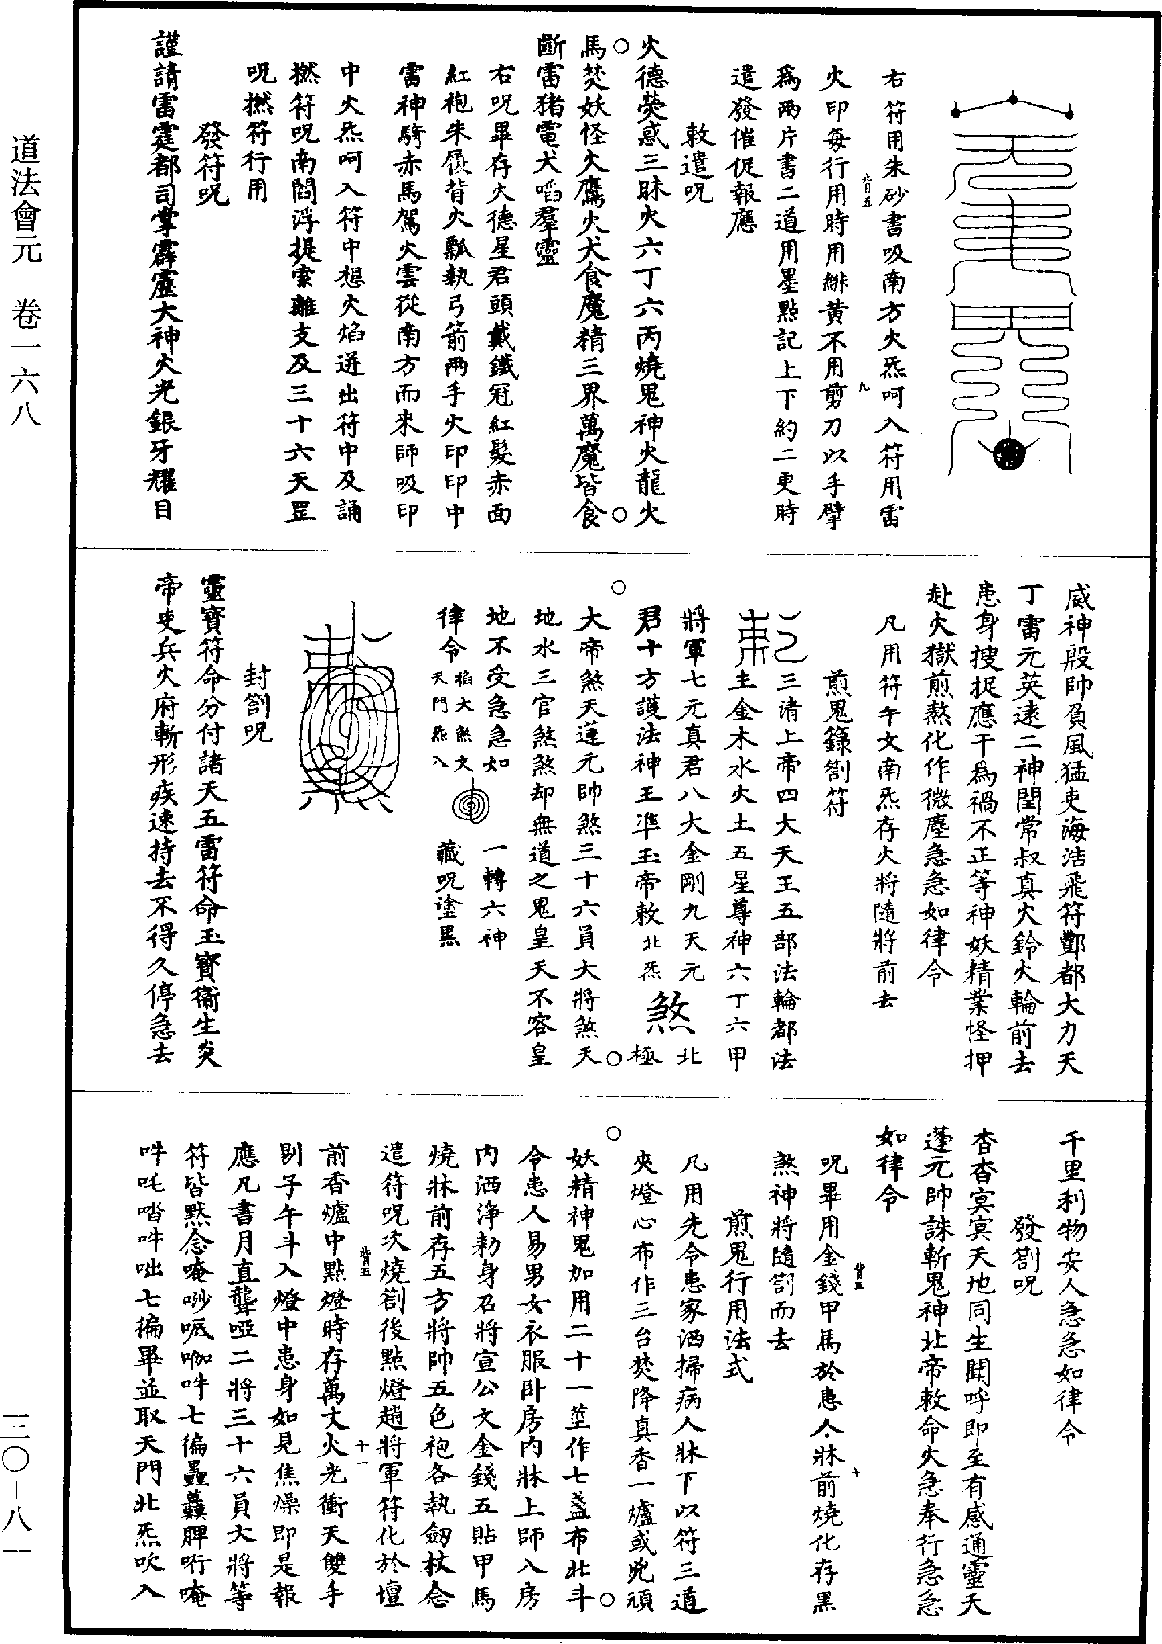 道法會元　卷一六八
右符用朱砂書吸南方火炁呵入符用雷
火印每行用時用緋黃不用剪刀以手擘
爲兩片書二道用墨點記上下約二更時
遣發催促報應
敕遣呪
火德熒惑三昧火六丁六丙燒鬼神火龍火
馬焚妖怪火鷹火犬食魔精三界萬魔皆食
斷雷猪電犬啗羣靈
右呪畢存火德星君頭戴鐵冠紅髮赤面
紅袍朱履背火瓢執弓箭兩手火印印中
雷神騎赤馬駕火雲從南方而來師吸印
中火炁呵入符中想火焰迸出符中及誦
撚符呪南閻浮提索離支及三十六天罡
呪撚符行用
發符呪
謹請雷霆都司掌霹靂大神火光銀牙耀目
威神殷帥負風猛吏海浩飛符酆都大力天
丁雷元英遠二神閏常叔真火鈴火輪前去
患身搜捉應干爲禍不正等神妖精業怪押
赴火獄煎熬化作微塵急急如律令
凡用符午文南炁存火將隨將前去
煎鬼錄劄符
三清上帝四大天王五部法輪都法
主金木水火土五星尊神六丁六甲
將軍七元真君八大金剛九天元
君十方護法神王準玉帝敕北炁
煞
北
極
大帝煞天蓬元帥煞三十六員大將煞天
地水三官煞煞却無道之鬼皇天不容皇
地不受急急如
律令
掐大煞文
天門炁入
一轉六神
藏呪塗黑
封劄呪
靈寶符命分付諸天五雷符命玉寶衞生炎
帝吏兵火府斬形疾速持去不得久停急去
千里利物安人急急如律令
發劄呪
杳杳冥冥天地同生聞呼即至有感通靈天
蓬元帥誅斬鬼神北帝敕命火急奉行急急
如律令
呪畢用金錢甲馬於患人牀前燒化存黑
煞神將隨劄而去
煎鬼行用法式
凡用先令患家洒掃病人牀下以符三道
夾燈心布作三台焚降真香一爐或兇頑
妖精神鬼加用二十一莖作七盞布北斗
令患人易男女衣服卧房內牀上師入房
內洒淨勑身召將宣公文金錢五貼甲馬
燒牀前存五方將帥五色袍各執劔杖念
遣符呪次燒劄後點燈趙將軍符化於壇
前香爐中點燈時存萬丈火光衝天雙手
剔子午斗入燈中患身如見焦燥即是報
應凡書月直聾啞二將三十六員大將等
符皆默念唵唦呃㗎吽七徧𧖟䗽脾哘唵
吽吒唶吽咄七徧畢並取天門北炁吹入
三〇－八一